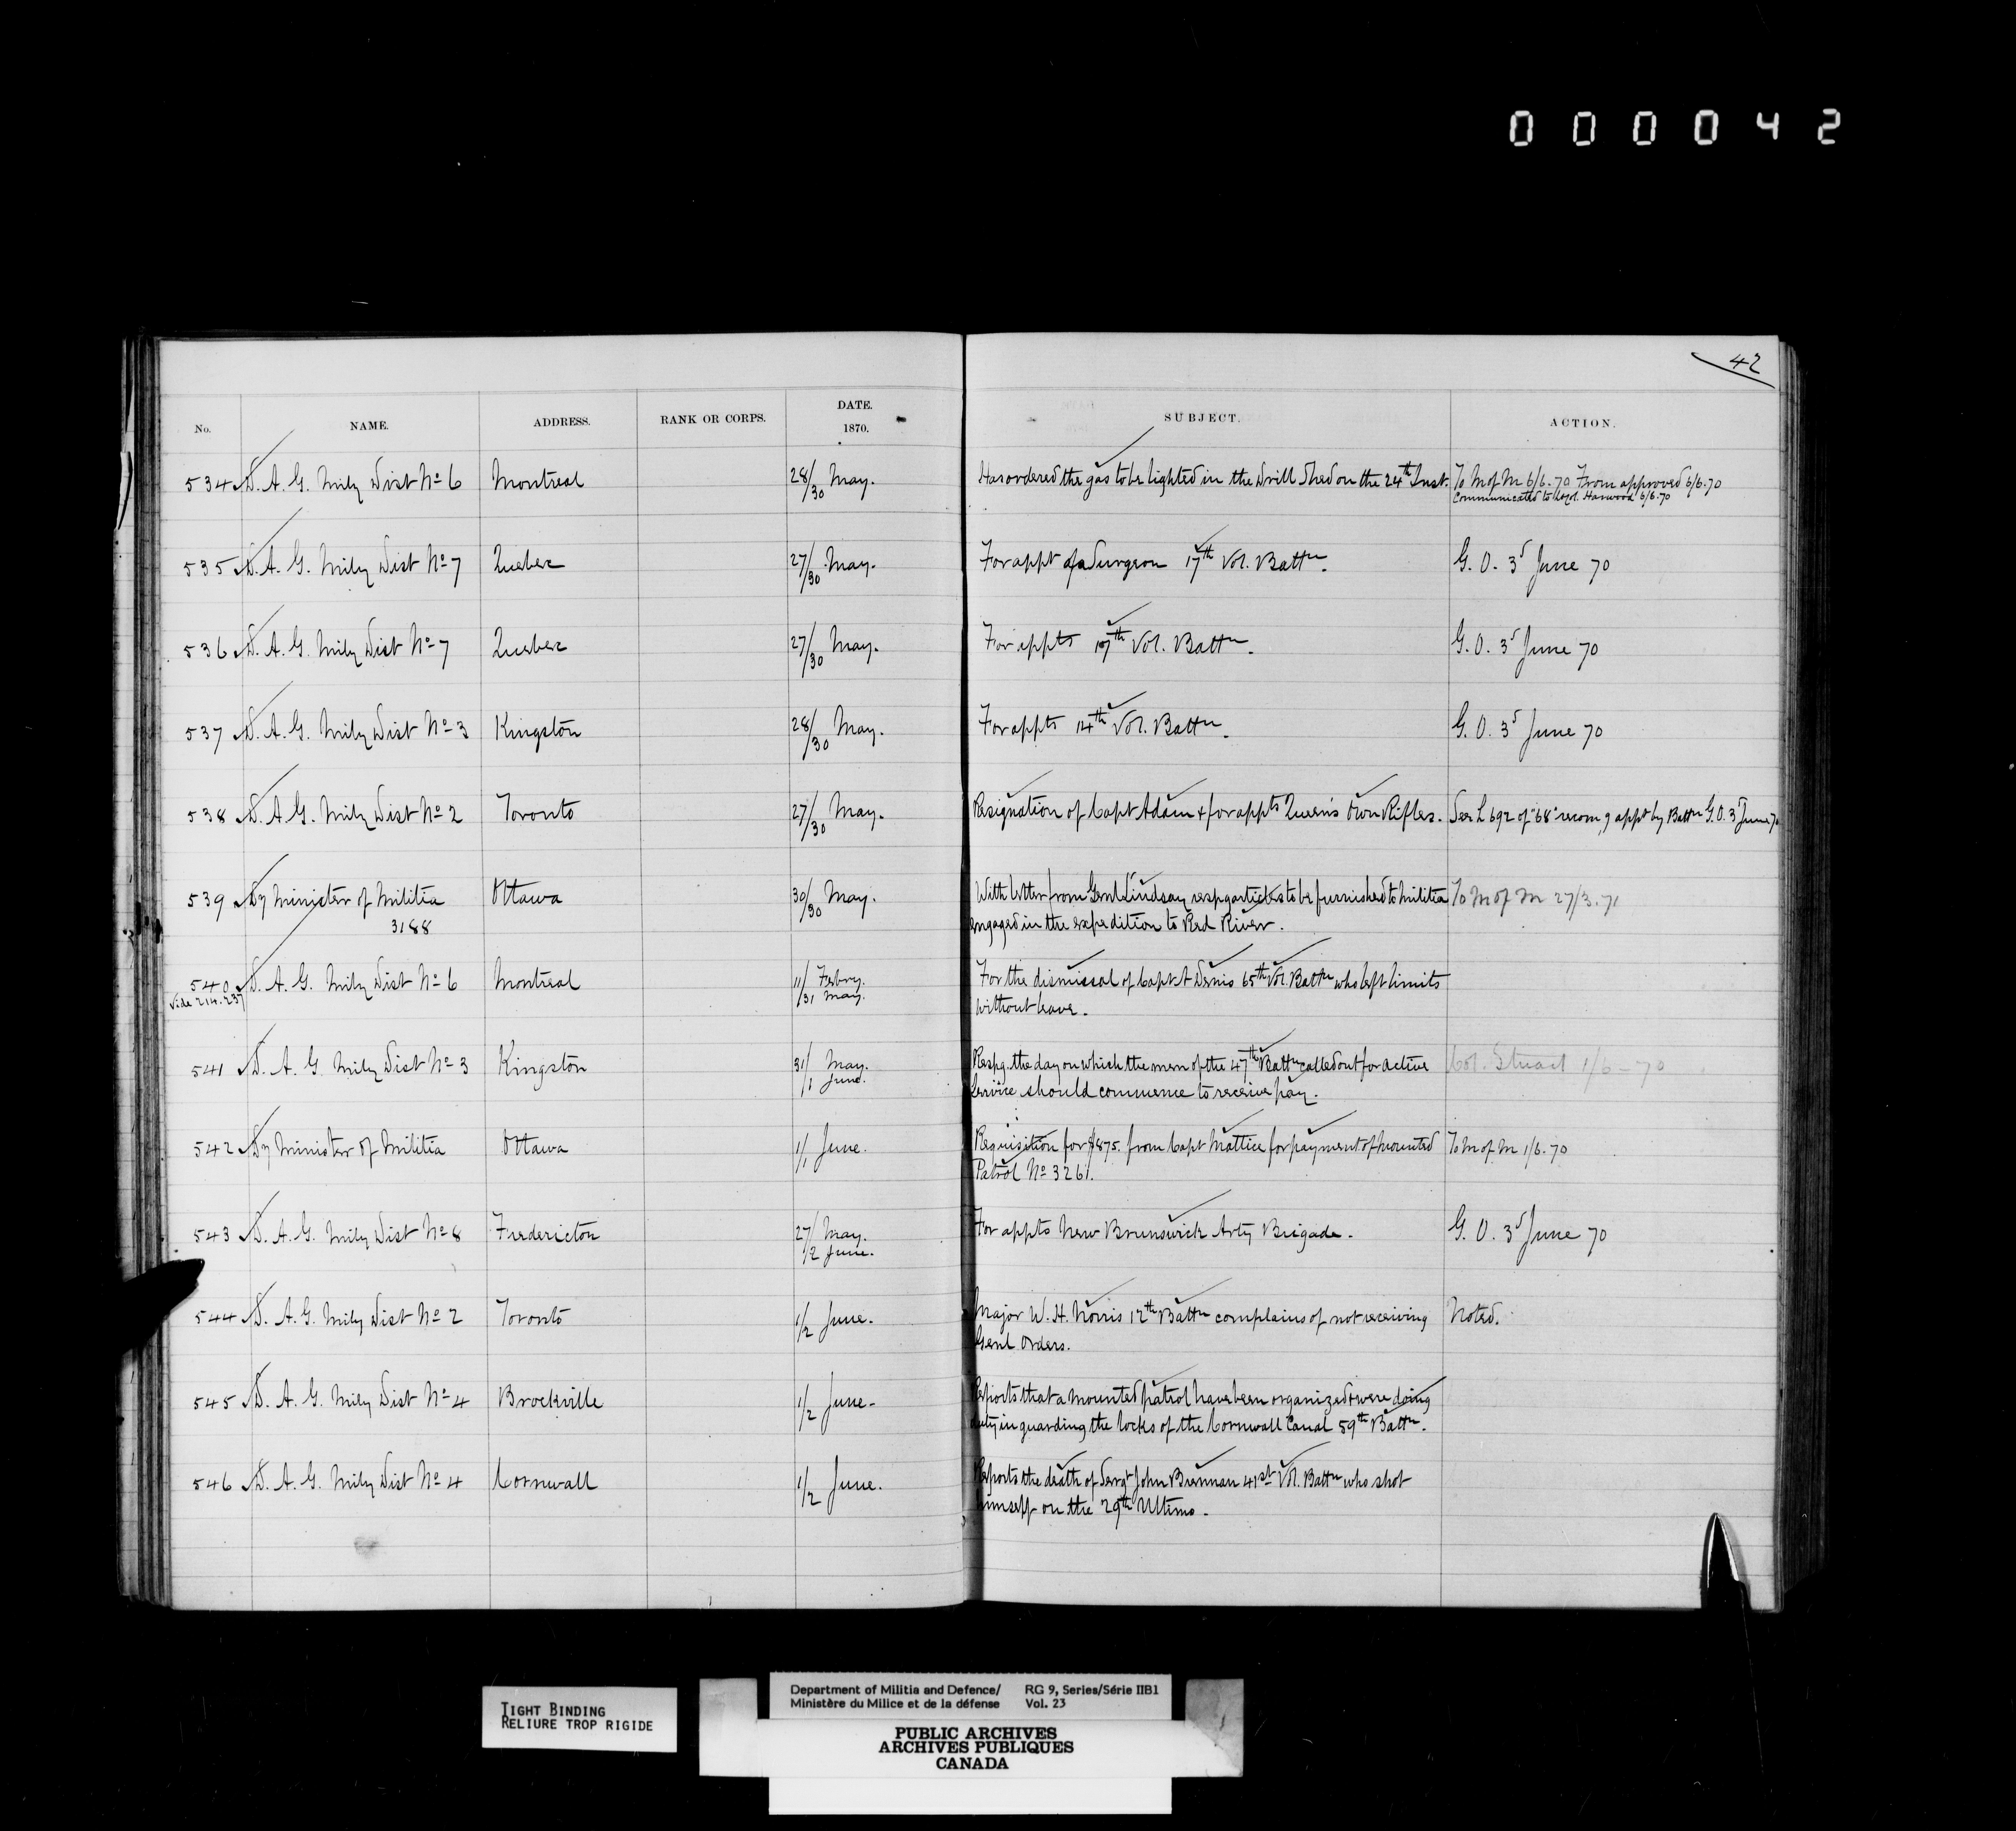 000042
42
No. NAME. ADDRESS. RANK OR CORPS. DATE. 1870. SUBJECT. ACTION.
534 D. A. G. Mily Dist No 6 Montreal 28/30 May. Has ordered the gas to be lighted in the Drill Shed on the 24th Inst. To M of M 6/6.70 From approved 6/6.70
Communicated to Lt Col. Harwood 6/6.70
535 D. A. G. Mily Dist No 7 Quebec 27/30 May. For appt of a Surgeon 17th Vol. Battn. G. O. 3d June 70
536 D. A. G. Mily Dist No 7 Quebec 27/30 May. For appts 17th Vol. Battn. G. O. 3d June 70
537 D. A. G. Mily Dist No 3 Kingston 28/30 May. For appts 14th Vol. Battn. G. O. 3d June 70
538 D. A. G. Mily Dist No 2 Toronto 27/30 May. Resignation of Capt Adam & for appts Queen's Own Rifles. See L 692 of "68" recom, g appt by Battn G. O. 3d June 70
539 Dy Minister of Militia Ottawa 30/30 May. With letter from Genl Lindsay respg articles to be furnished to Militia To M of M 27/3.71
3188 engaged in the expedition to Red River.
540 D. A. G. Mily Dist No 6 Montreal 11/ Febry. For the dismissal of Capt A Denis 65th Vol. Battn who left limits
Vide 214.237 /31 May. without leave.
541 D. A. G. Mily Dist No 3 Kingston 31/ May. Respg. the day on which the men of the 47th Battn called out for active Col. Stuart 1/6-70
/1 June. Service should commence to receive pay.
542 Dy Minister of Militia Ottawa 1/1 June. Requisition for $875. from Capt Mattice for payment of Mounted To M of M 1/6.70
Patrol No 3261.
543 D. A. G. Mily Dist No 8 Fredericton 27/ May. For appts New Brunswick Arty Brigade. G. O. 3d June 70
/2 June.
544 D. A. G. Mily Dist No 2 Toronto 1/2 June. Major W. H. Norris 12th Battn complains of not receiving Noted.
Genl Orders.
545 D. A. G. Mily Dist No 4 Brockville 1/2 June. Reports that a mounted patrol have been organized & were doing
duty in guarding the locks of the Cornwall Canal 59th Battn.
546 D. A. G. Mily Dist No 4 Cornwall 1/2 June. Reports the death of Sergt John Brennan 41st Vol. Battn who shot
himself on the 29th Ultimo.
TIGHT BINDING
RELIURE TROP RIGIDE
Department of Militia and Defence/ RG 9, Series/Série IIB1
Ministère du Milice et de la défense Vol. 23
PUBLIC ARCHIVES
ARCHIVES PUBLIQUES
CANADA